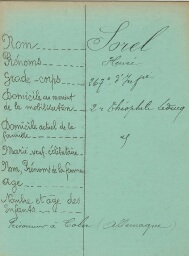 Nom Sorel
Prénoms Henri
Grade-corps 267e d'Inf.ie
Domicile au moment
de la mobilisation 2 r. Théophile
Domicile actuel de la
famille
Marié, veuf, célibataire
Nom, Prénoms de la femme
Age
Nombre et age des
enfants
Prisonnier à (Allemagne)